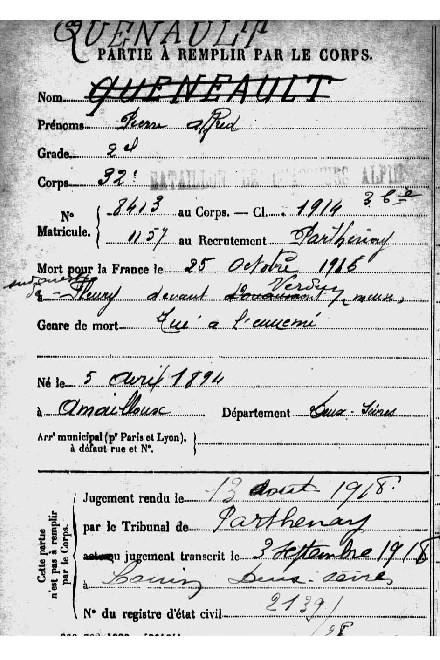 QUENAULT
PARTIE À REMPLIR PAR LE CORPS.
Nom QUENEAULT
Prénoms Pierre Alfred
Grade 2 cl
Corps 32e BATAILLON DE CHASSEURS ALPINS
N° Matricule. { 8413 au Corps. — Cl. 1914
1157 au Recrutement Parthenay
Mort pour la France le 25 Octobre 1916
à Fleury devant Douaumont Verdun, meuse,
Genre de mort Tué à l'ennemi
Né le 5 avril 1894
à Amailloux Département Deux-Sèvres
Arr' municipal (p' Paris et Lyon), à défaut rue et N°. {
Cette partie n'est pas à remplir par le Corps. {
Jugement rendu le 13 août 1918.
par le Tribunal de Parthenay
acte ou jugement transcrit le 3 septembre 1918
à Deux-Sèvres
N° du registre d'état civil 21391